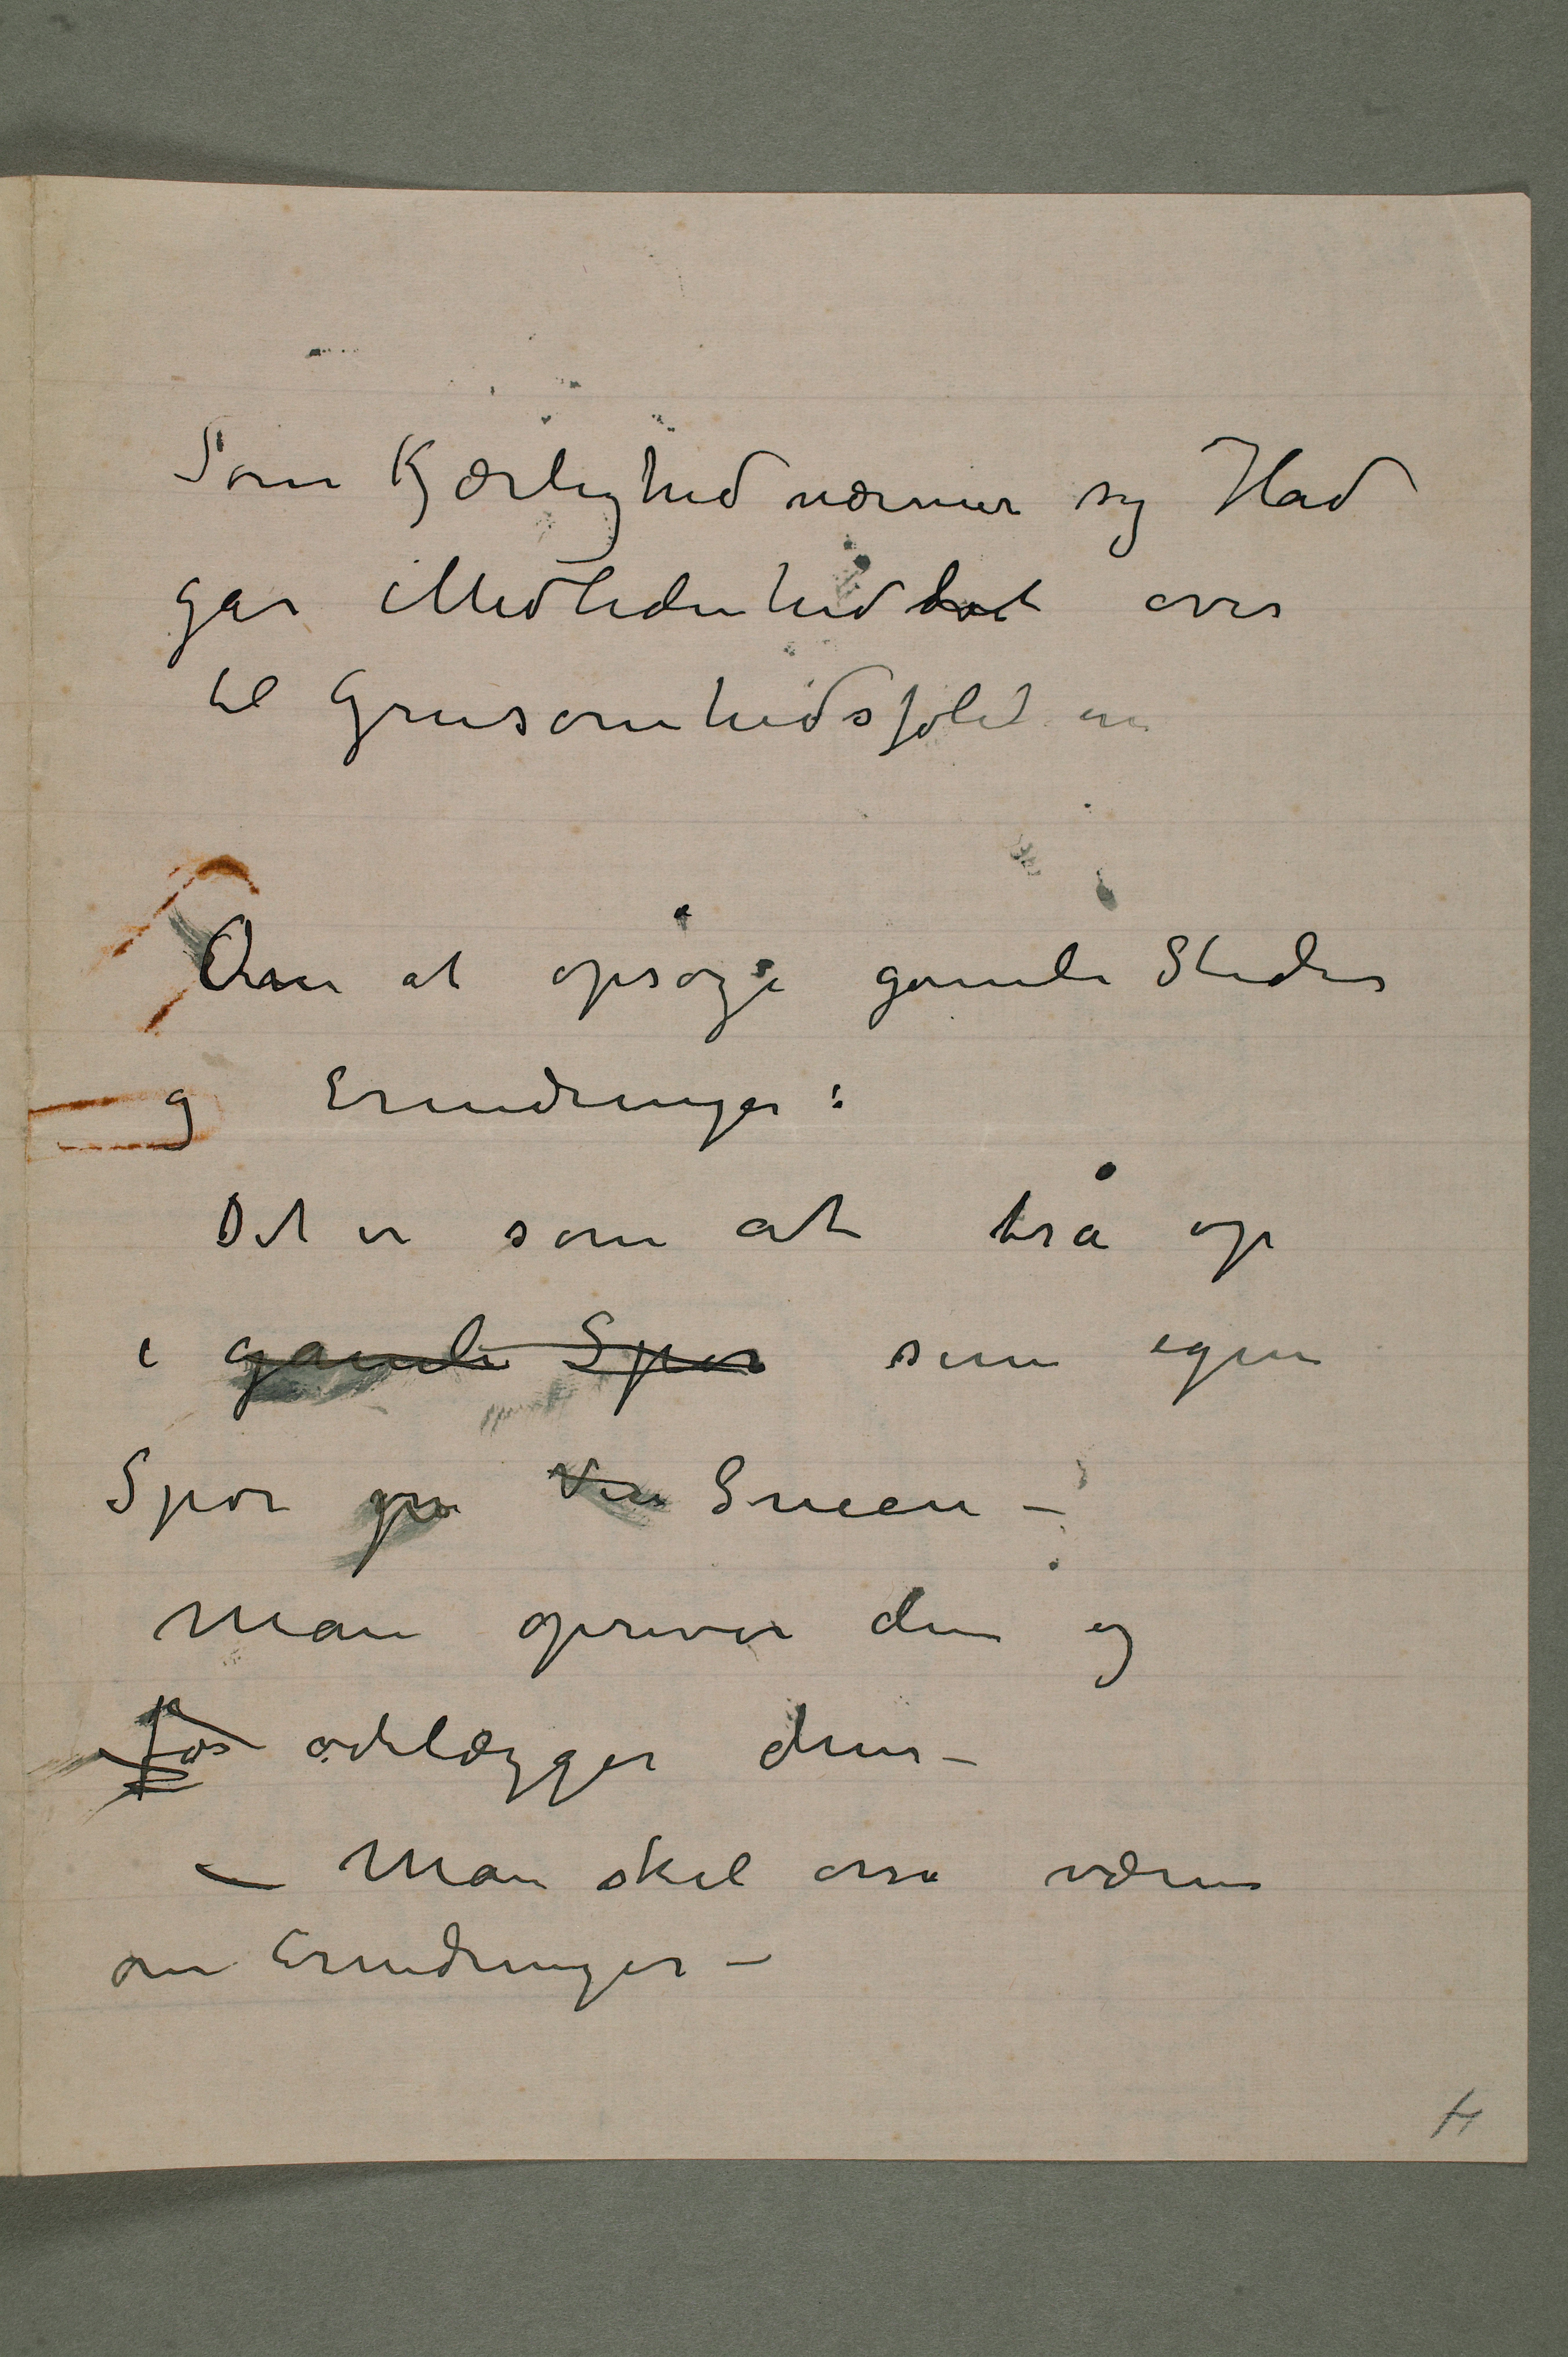 Som Kjærlighed nærmer sig Had
gar Medlidenhed let over
til Grusomhedsfølelsen
Om at opsøge gamle Steder
og Erindringer:
Det er som at trå op
i gamle Spor sine egne
Spor på Sneen –
man opriver dem og
ødelægger dem –
– Man skal være
om Erindringer –